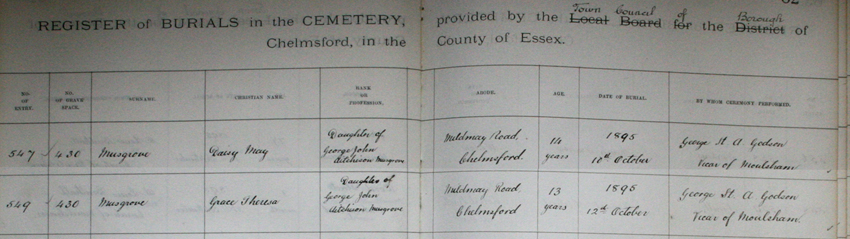 REGISTER of BURIALS in the CEMETERY, provided by the Local Board for the District of
Town Council of Borough
Chelmsford, in the County of Essex.
NO. OF ENTRY. NO. OF GRAVE SPACE. SURNAME. CHRISTIAN NAME. RANK OR PROFESSION. ABODE. AGE. DATE OF BURIAL. BY WHOM CEREMONY PERFORMED.
547 430 Musgrove Daisy May Daughter of George John Aitchison Musgrove Mildmay Road, Chelmsford. 14 years 1895 10th October George St. A. Godson Vicar of Moulsham
549 430 Musgrove Grace Theresa Daughter of George John Aitchison Musgrove Mildmay Road, Chelmsford 13 years 1895 12th October George St. A. Godson Vicar of Moulsham.